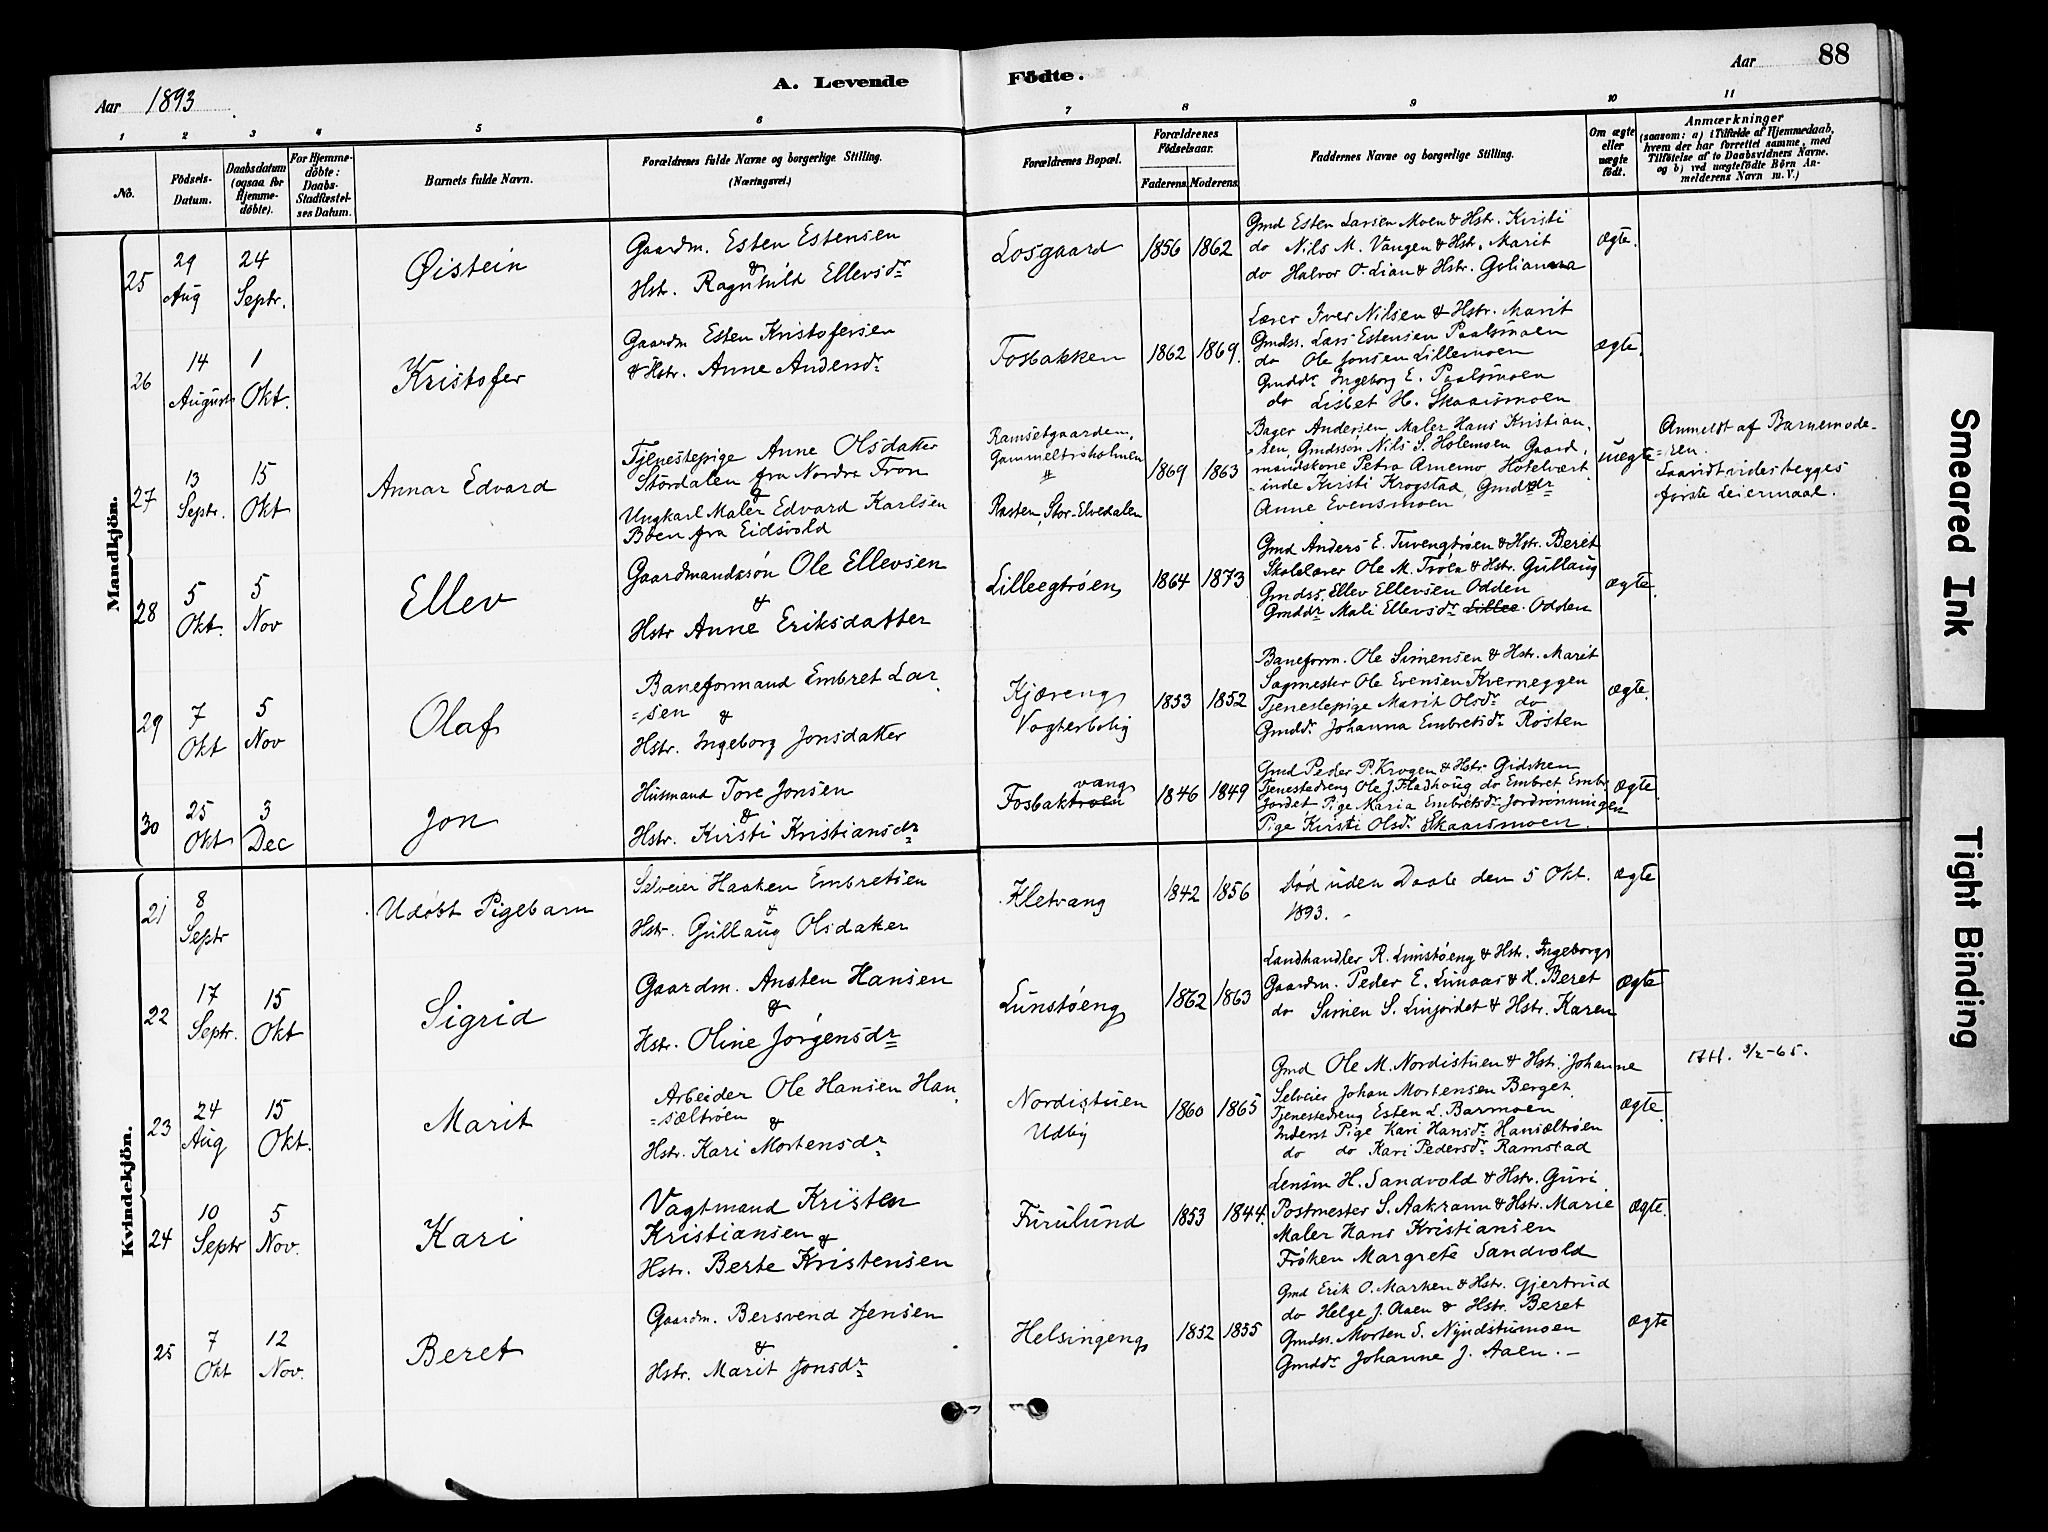 88
A. Levende Födte.
Aar 1893.
Aar
1 2 3 4 5 6 7 8 9 10 11
No.
Födsels-Datum.
Daabsdatum (ogsaa for Hjemmedöbte).
For Hjemmedöbte: Daabs-Stadfæstelses Datum.
Barnets fulde Navn.
Forældrenes fulde Navne og borgerlige Stilling. (Næringsvei.)
Forældrenes Bopæl.
Forældrenes Födselsaar.
Faderens. Moderens.
Faddernes Navne og borgerlige Stilling.
Om ægte eller uægte födt.
Anmærkninger
(saasom: a) i Tilfælde af Hjemmedaab,
hvem der har forrettet samme, med
Tilföielse af to Daabsvidners Navne.
og b) ved uægtefödte Börn An-
melderens Navn m. V.)
Mandkjön.
25
29 Aug
24 Septr.
Øistein
Gaardm. Esten Estensen
&
Hstr. Ragnhild Ellevsdr
Losgaard
1856 1862
Gmd Esten Larsen Moen & Hstr. Kirsti
do Nils M. Vangen & Hstr. Marit
do Halvor O. Lian & Hstr. Golianna
ægte.
26
14 August
1 Okt.
Kristofer
Gaardm Esten Kristofersen
& Hstr. Anne Andersdr
Fosbakken
1862 1869.
Lærer Iver Nilsen & Hstr. Marit
Gmdss. Lars Estensen Paalsmoen
do Ole Jonsen Lillemoen
Gmddr Ingeborg E. Paalsmoen
do Lisbet H. Skaarsmoen
ægte.
27
13 Septr.
15 Okt
Annar Edvard
Tjenestepige Anne Olsdatter
Stördalen fra Nordre Fron
&
Ungkarl Maler Edvard Karlsen
Böen fra Eidsvold
Ramsetgaarden,
Gammeltröholmen
Rasten, Stor-Elvedalen
1869 1863
Bager Andersen, Maler Hans Kristian-
sen, Gmdssøn Nils S. Holemoen Gaard-
mandskone Petra Arnemo, Hotelvært-
inde Kirsti Krogstad, Gmddr
Anne Evensmoen
uægte
Anmeldt af Barnemode-
=ren.
Saavidt vides begges
første Leiermaal.
28
5 Okt.
5 Nov
Ellev
Gaardmandssön Ole Ellevsen
&
Hstr Anne Eriksdatter
Lilleegtröen
1864 1873
Gmd Anders E. Tuvengtröen & Hstr. Beret
Skolelærer Ole M. Tröen & Hstr. Gullaug
Gmdss. Ellev Ellevsen Odden
Gmddr Mali Ellevsdr Lillee Odden
ægte.
29
7 Okt
5 Nov
Olaf
Baneformand Embret Lar-
=sen &
Hstr. Ingeborg Jonsdatter
Kjæreng
Vogterbolig
1853 1852
Baneform. Ole Simensen & Hstr. Marit
Sagmester Ole Evensen Kverneggen
Tjenestepige Marit Olsdr do
Gmddr Johanna Embretsdr Rosten
ægte.
30
25 Okt
3 Dec
Jon
Husmand Tore Jonsen
&
Hstr. Kirsti Kristiansdr
Fosbaktroen vang
1846 1849
Gmd Peder P. Krogen & Hstr Gidsken
Tjenestedreng Ole J. Fladhoug do Embret Embr.
Jordet Pige Maria Embretsdr Jordrønningen
Pige Kirsti Olsdr Skaarsmoen.
ægte.
Kvindekjön.
21
8 Septr
Udöbt Pigebarn
Selveier Haaken Embretsen
&
Hstr. Gullaug Olsdatter
Kletvang
1842 1856
Död uden Daab den 5 Okt.
1893. -
ægte
22
17 Septr.
15 Okt
Sigrid
Gaardm. Ansten Hansen
&
Hstr. Oline Jørgensdr
Lunstöeng
1862 1863
Landhandler R. Lunstöeng & Hstr. Ingeborg
Gaardm. Peder E. Lunaas & H. Beret
do Simen S. Linjordet & Hstr. Karen
ægte
23
24 Aug
15 Okt.
Marit
Arbeider Ole Hansen Han-
=sæltröen
&
Hstr. Kari Mortensdr
Nordistuen
Udby
1860 1865
Gmd Ole M. Nordistuen & Hstr. Johanne
Selveier Johan Mortensen Berget
Tjenestedreng Esten L. Barmoen
Inderst Pige Kari Hansdr Hansæltröen
do do Kari Pedersdr Ramstad
ægte.
3/2-65.
24
10 Septr
5 Nov.
Kari
Vagtmand Kristen
Kristiansen &
Hstr. Berte Kristensen
Furulund
1853 1844.
Lensm H. Sandvold & Hstr. Guri
Postmester S. Aakrann & Hstr. Marie
Maler Hans Kristiansen
Fröken Margrete Sandvold
ægte.
25
7 Okt
12 Nov.
Beret
Gaardm. Bersvend Jensen
&
Hstr. Marit Jonsdr
Helsingeng
1852 1855
Gmd Erik O. Marken & Hstr. Gjertrud
do Helge J. Aaen & Hstr. Beret
Gmdss. Morten S. Nyndstumoen
Gmddr Johanne J. Aaen. -
ægte
Smeared Ink.
Tight Binding